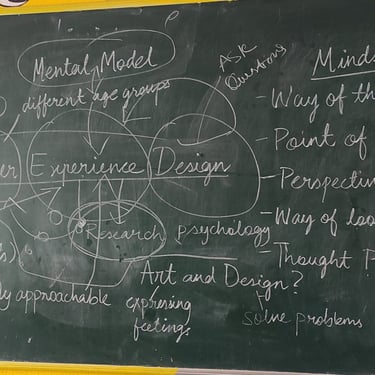 Mental Model
different age groups
ASK
Questions
Minds
- Way of th
- Point of
er Experience Design
- Perspectiv
Research psychology
- Way of loo
- Thought P
s)
Art and Design?
ly approachable
expressing
feelings
solve problems